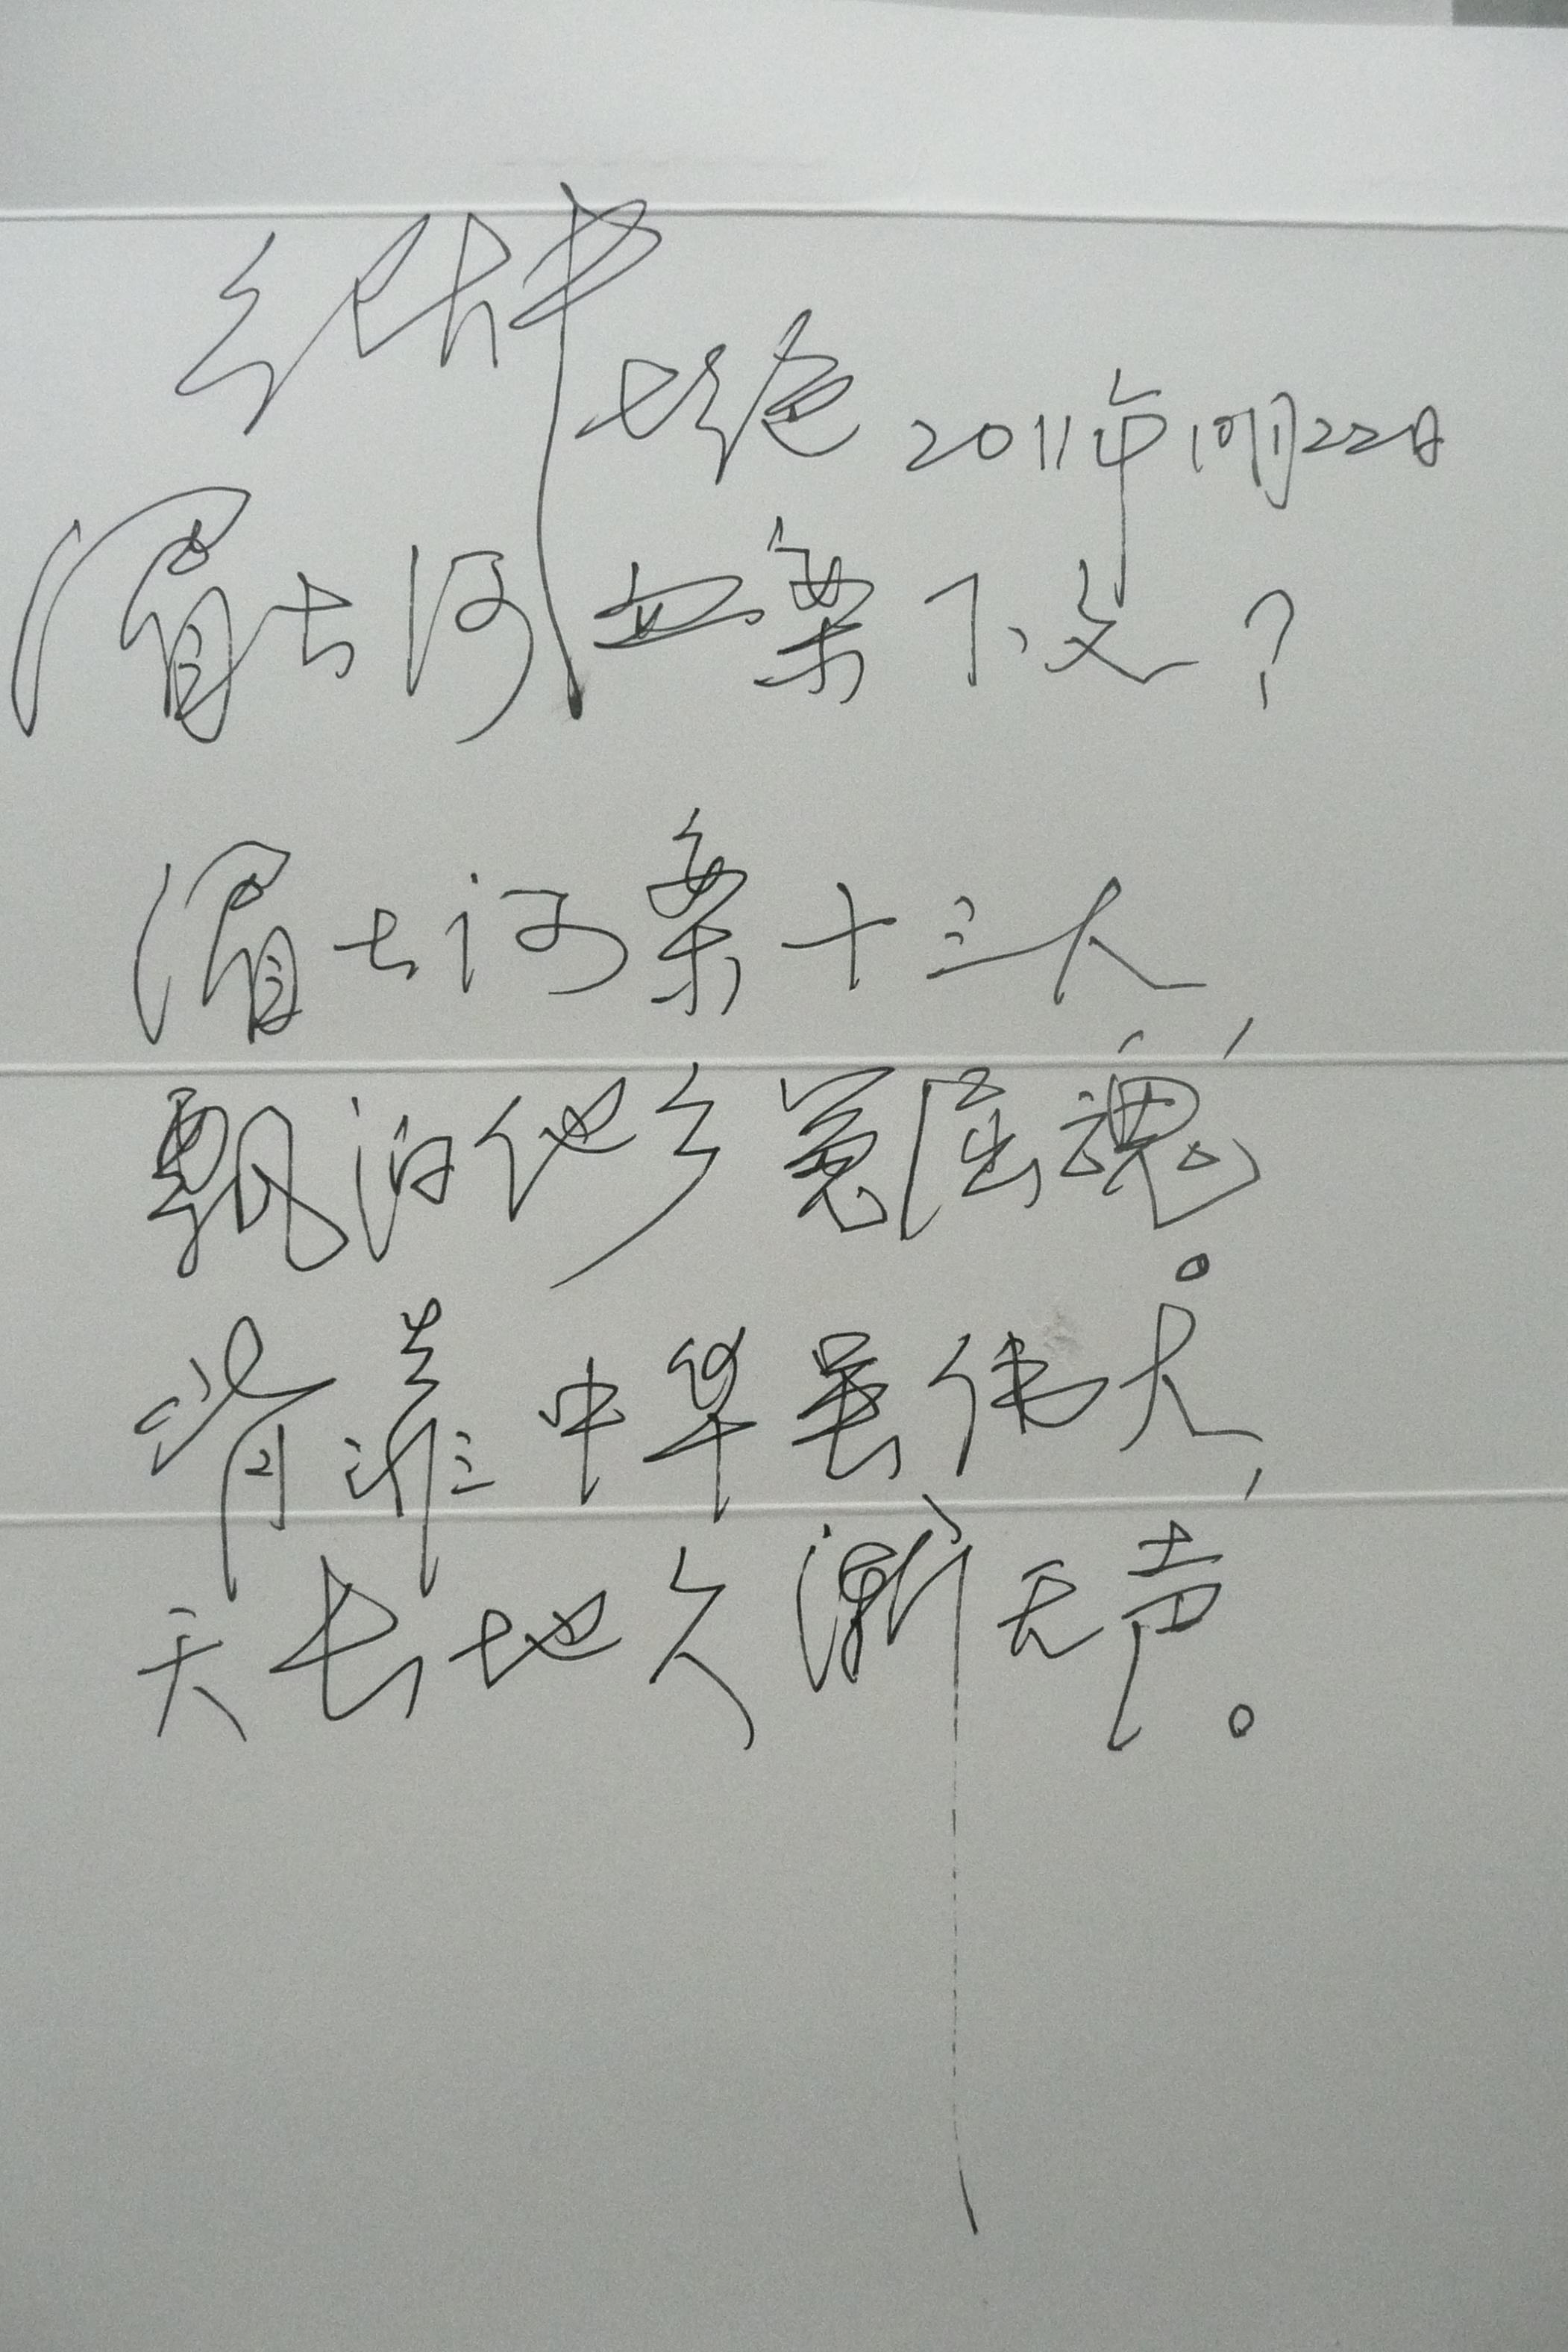 七绝 2011年10月22日
湄士河血案下文？
湄士河案十三人，
飘泊他乡冤屈魂。
背靠中华虽伟大，
天长地久渐无声。